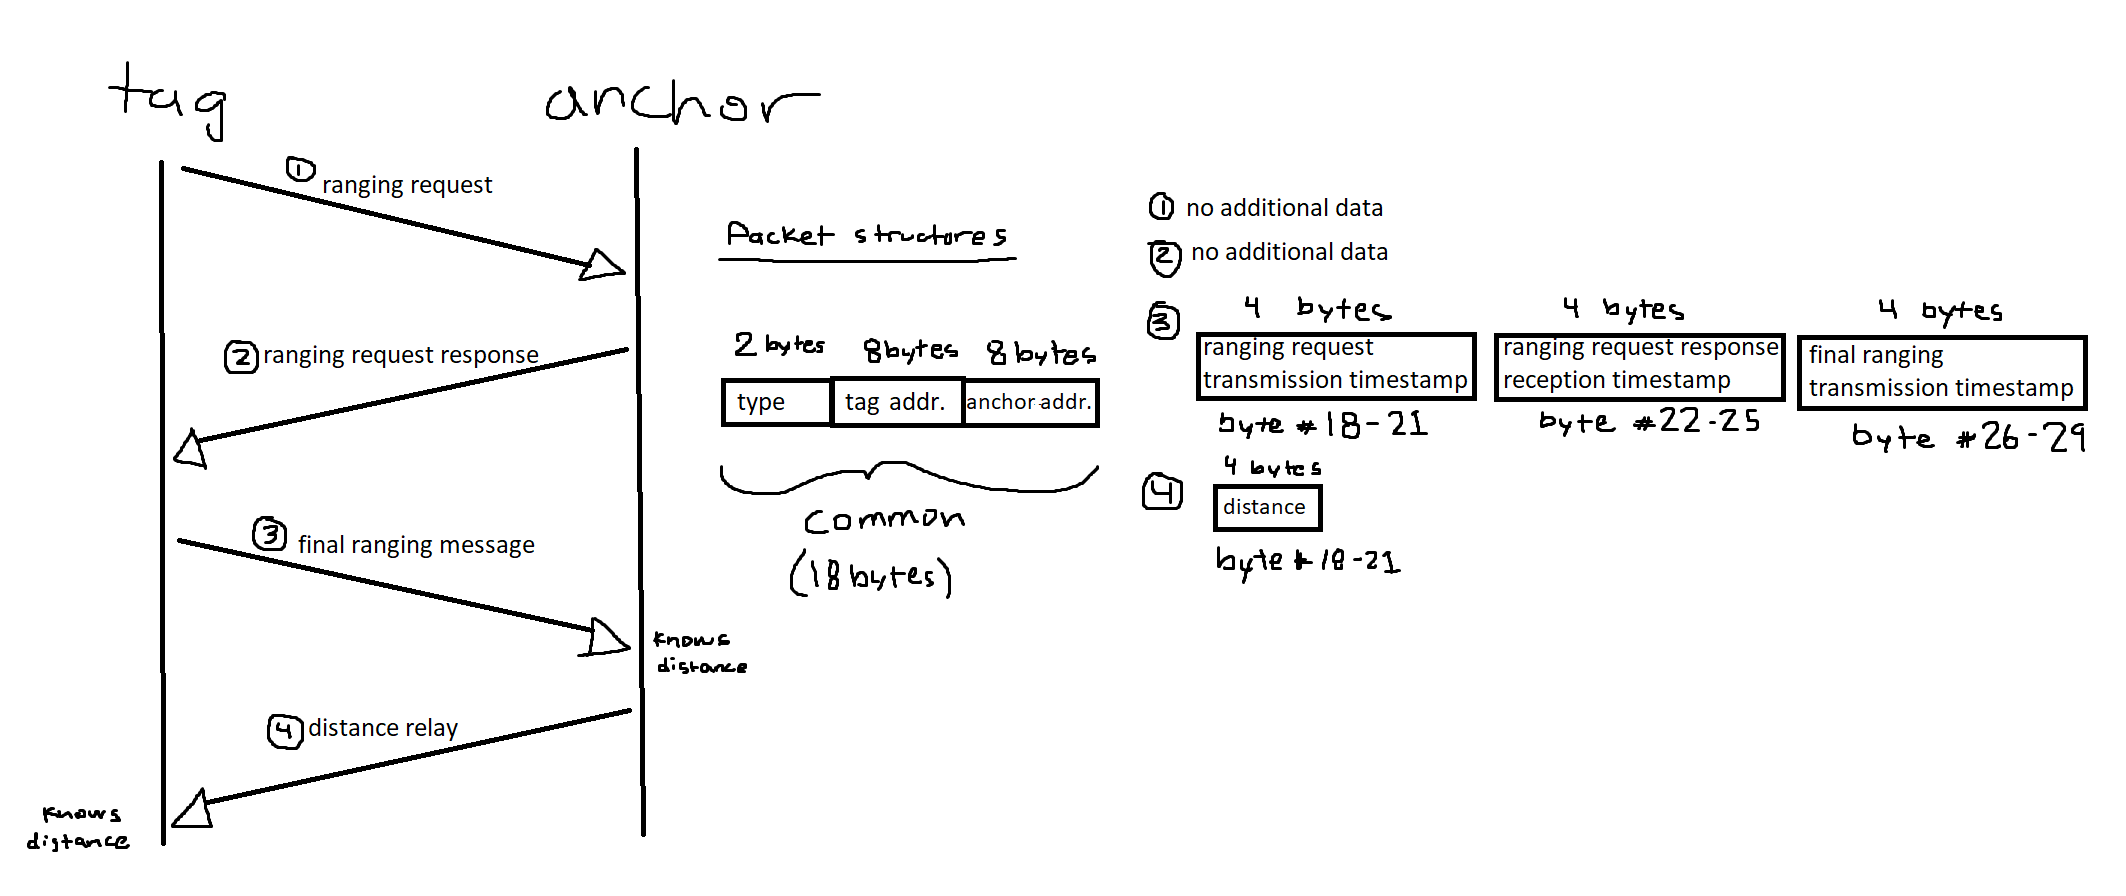 tag
anchor
1 ranging request
2 ranging request response
3 final ranging message
knows
distance
4 distance relay
knows
distance
Packet structores
2 bytes 8bytes 8bytes
type tag addr. anchor addr.
common
(18 bytes)
1 no additional data
2 no additional data
3
4 bytes 4 bytes 4 bytes
ranging request
transmission timestamp
ranging request response
reception timestamp
final ranging
transmission timestamp
byte #18-21 byte #22-25 byte #26-29
4
4 bytes
distance
byte #18-21